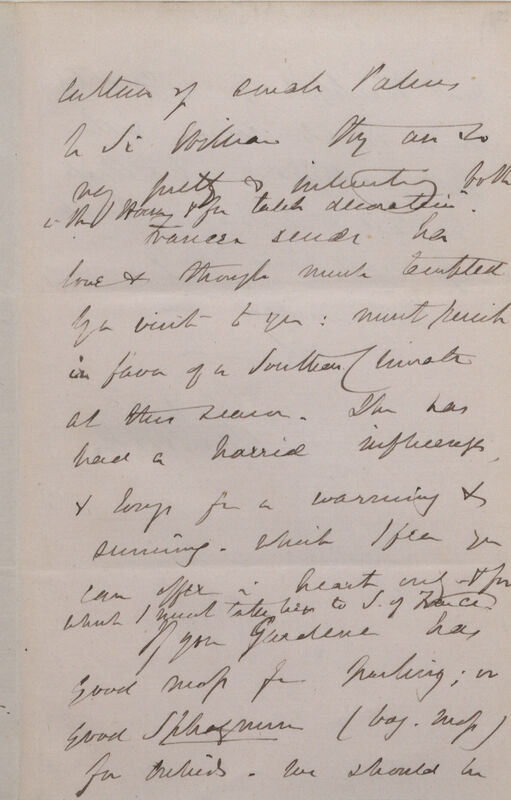 culture of small Palms
to Sir William they are so
very pretty & interesting both
in the House & for table decoration.
Frances sends her
love & though much tempted
by a visit to you: must decide
in favor of a Southern Climate
at this season. She has
had a horrid influenza,
& longs for a warming &
sunning. which I fear you
can offer in heart only & for
which I must take her to S. of France.
If your Gardener has
good moss for packing; or
good Sphagnum (bog. moss)
for orchids. we should be